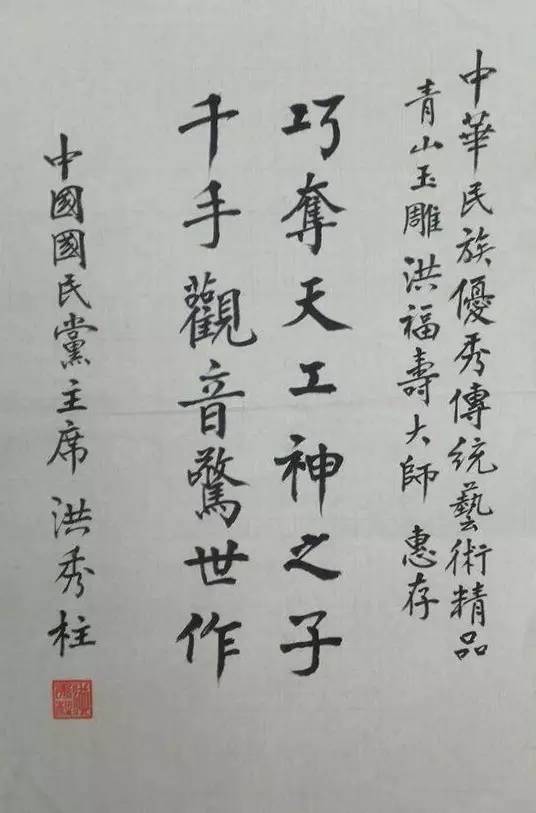 中華民族優秀傳統藝術精品
青山玉雕洪福壽大師 惠存
巧奪天工神之子
千手觀音驚世作
中國國民黨主席 洪秀柱